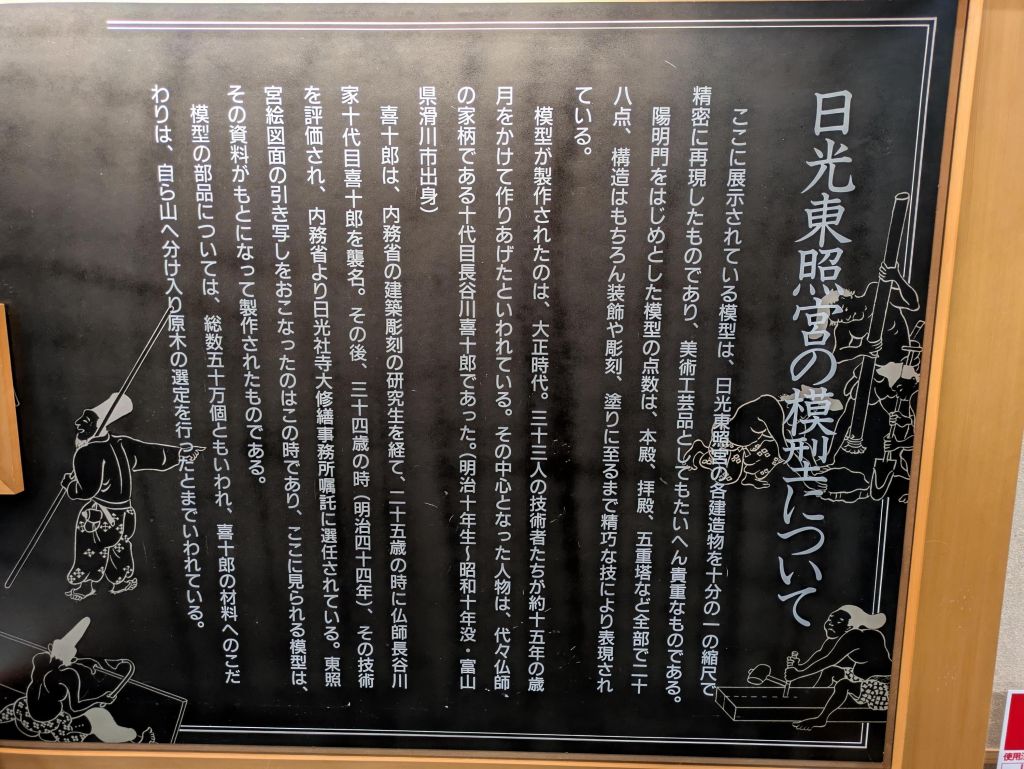 日光東照宮の模型について
ここに展示されている模型は、日光東照宮の各建造物を十分の一の縮尺で
精密に再現したものであり、美術工芸品としてもたいへん貴重なものである。
陽明門をはじめとした模型の点数は、本殿、拝殿、五重塔など全部で二十
八点、構造はもちろん装飾や彫刻、塗りに至るまで精巧な技により表現され
ている。
模型が製作されたのは、大正時代。三十三人の技術者たちが約十五年の歳
月をかけて作りあげたといわれている。その中心となった人物は、代々仏師、
の家柄である十代目長谷川喜十郎であった。（明治十年生〜昭和十年没・富山
県滑川市出身）
喜十郎は、内務省の建築彫刻の研究生を経て、二十五歳の時に仏師長谷川
家十代目喜十郎を襲名。その後、三十四歳の時（明治四十四年）、その技術
を評価され、内務省より日光社寺大修繕事務所嘱託に選任されている。東照
宮絵図面の引き写しをおこなったのはこの時であり、ここに見られる模型は、
その資料がもとになって製作されたものである。
模型の部品については、総数五十万個ともいわれ、喜十郎の材料へのこだ
わりは、自ら山へ分け入り原木の選定を行ったとまでいわれている。
使用済